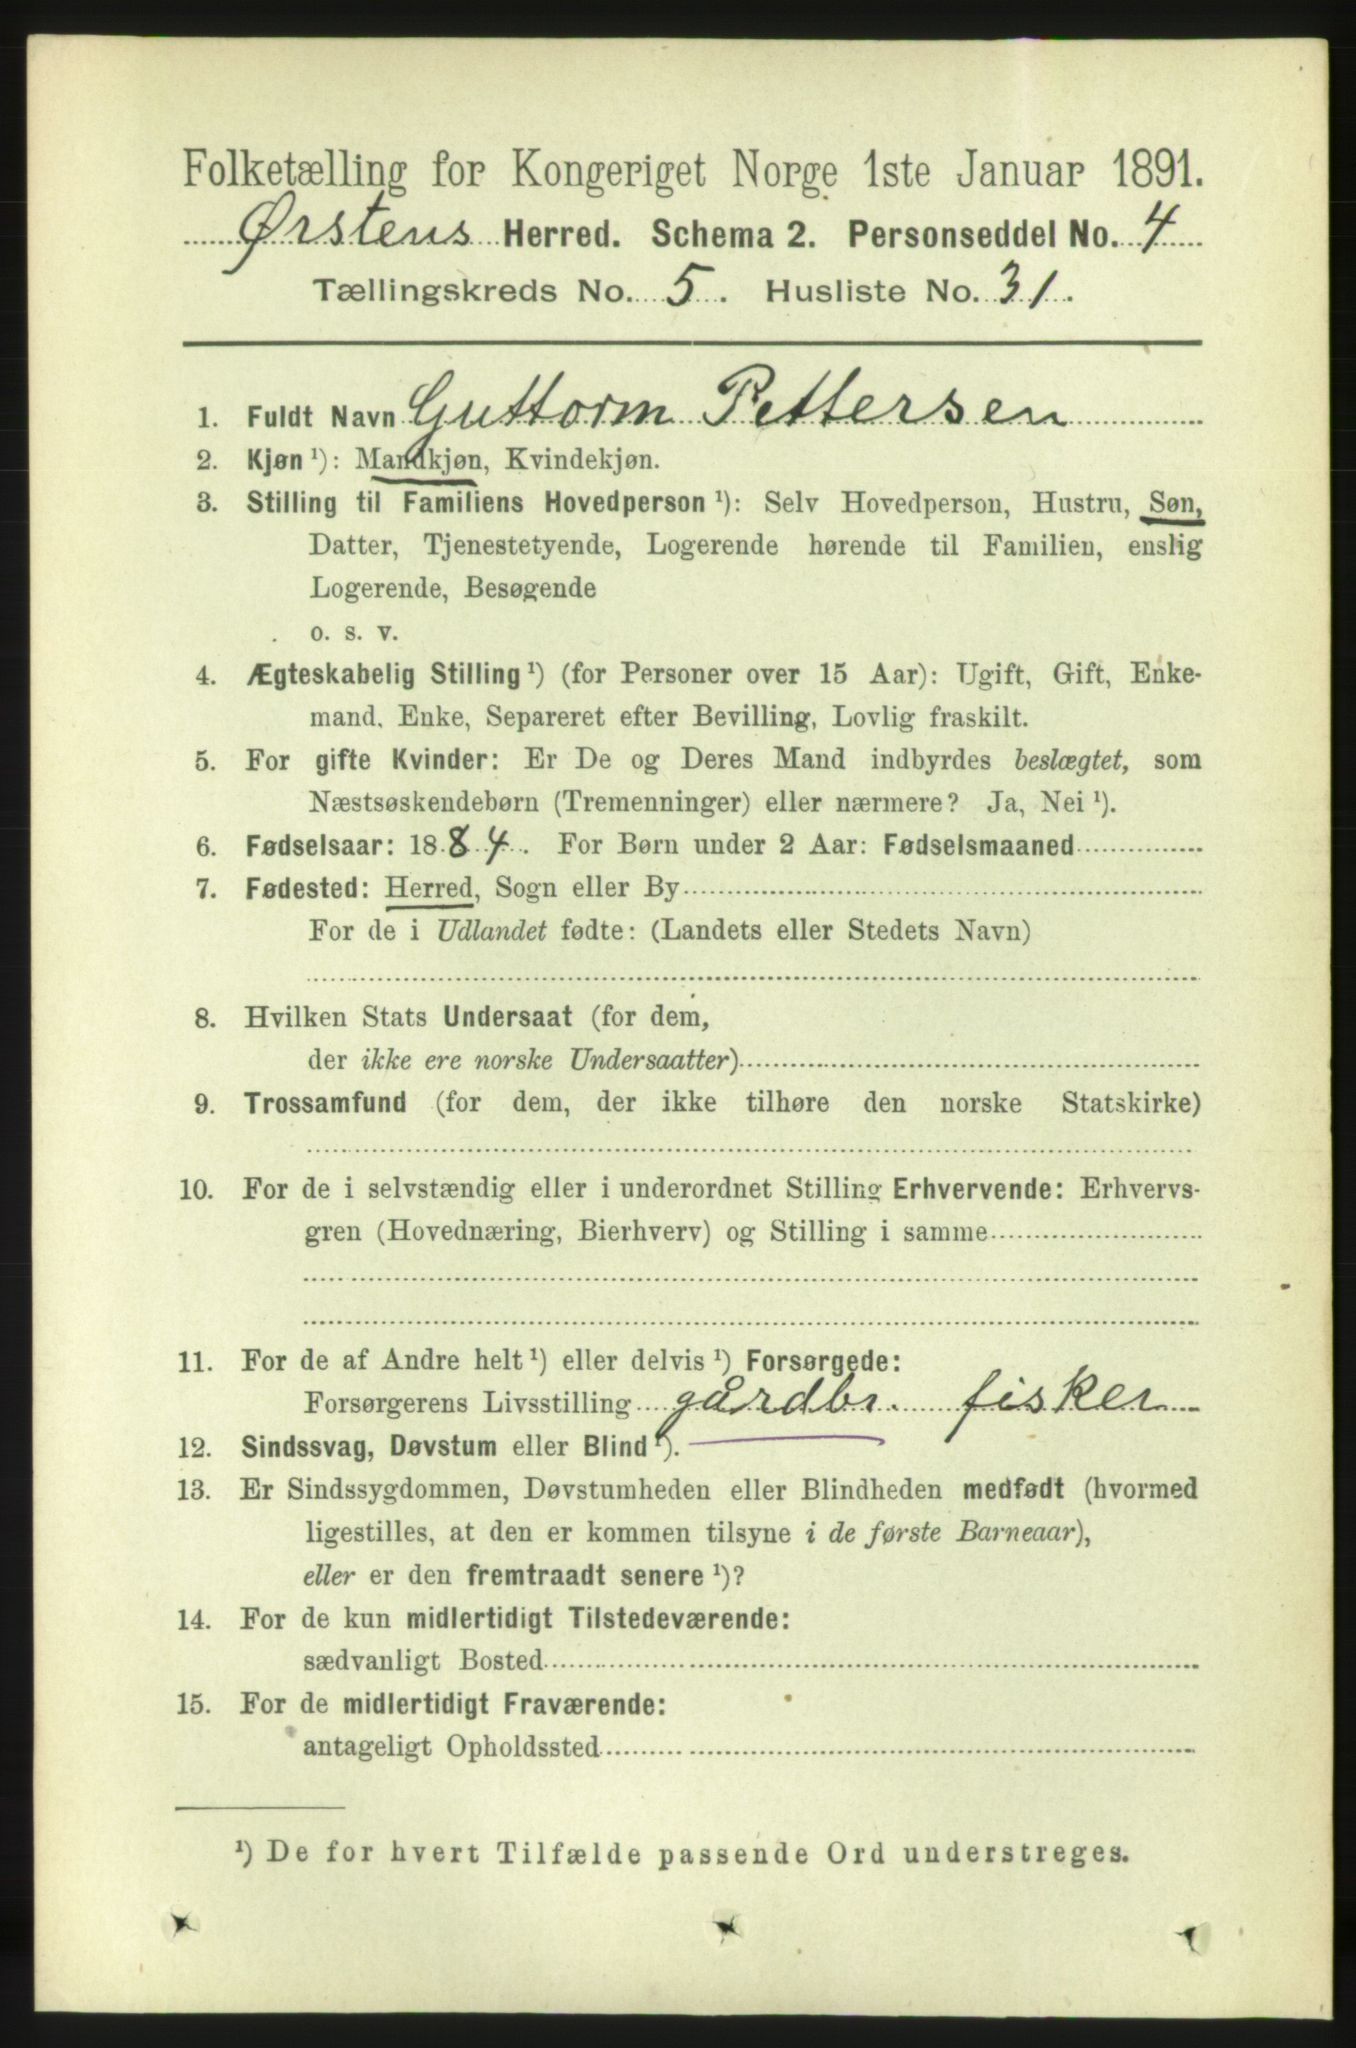 Folketælling for Kongeriget Norge 1ste Januar 1891.
Ørstens Herred. Schema 2. Personseddel No. 4
Tællingskreds No. 5. Husliste No. 31.
1. Fuldt Navn Guttorm Pettersen
2. Kjøn ¹): Mandkjøn, Kvindekjøn.
3. Stilling til Familiens Hovedperson ¹): Selv Hovedperson, Hustru, Søn,
Datter, Tjenestetyende, Logerende hørende til Familien, enslig
Logerende, Besøgende
o. s. v.
4. Ægteskabelig Stilling ¹) (for Personer over 15 Aar): Ugift, Gift, Enke-
mand, Enke, Separeret efter Bevilling, Lovlig fraskilt.
5. For gifte Kvinder: Er De og Deres Mand indbyrdes beslægtet, som
Næstsøskendebørn (Tremenninger) eller nærmere? Ja, Nei ¹).
6. Fødselsaar: 1884. For Børn under 2 Aar: Fødselsmaaned
7. Fødested: Herred, Sogn eller By
For de i Udlandet fødte: (Landets eller Stedets Navn)
8. Hvilken Stats Undersaat (for dem,
der ikke ere norske Undersaatter)
9. Trossamfund (for dem, der ikke tilhøre den norske Statskirke)
10. For de i selvstændig eller i underordnet Stilling Erhvervende: Erhvervs-
gren (Hovednæring, Bierhverv) og Stilling i samme
11. For de af Andre helt ¹) eller delvis ¹) Forsørgede:
Forsørgerens Livsstilling gårdbr. fisker
12. Sindssvag, Døvstum eller Blind ¹).
13. Er Sindssygdommen, Døvstumheden eller Blindheden medfødt (hvormed
ligestilles, at den er kommen tilsyne i de første Barneaar),
eller er den fremtraadt senere ¹)?
14. For de kun midlertidigt Tilstedeværende:
sædvanligt Bosted
15. For de midlertidigt Fraværende:
antageligt Opholdssted
¹) De for hvert Tilfælde passende Ord understreges.